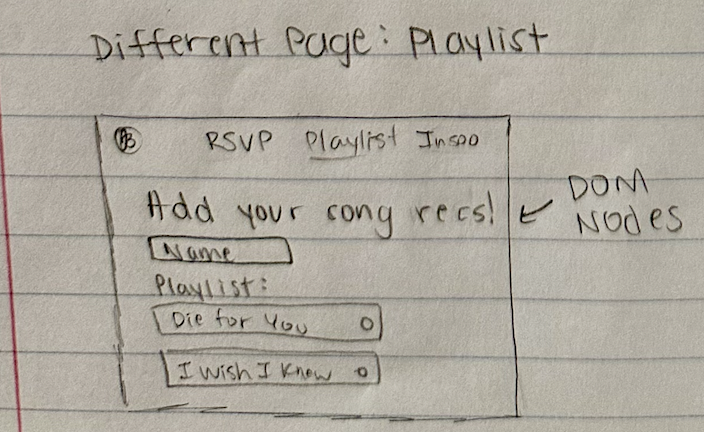 Different Page: Playlist
RSVP Playlist Inspo
Add your song recs!
DOM
Nodes
Name
Playlist:
Die for You
I Wish I Knew